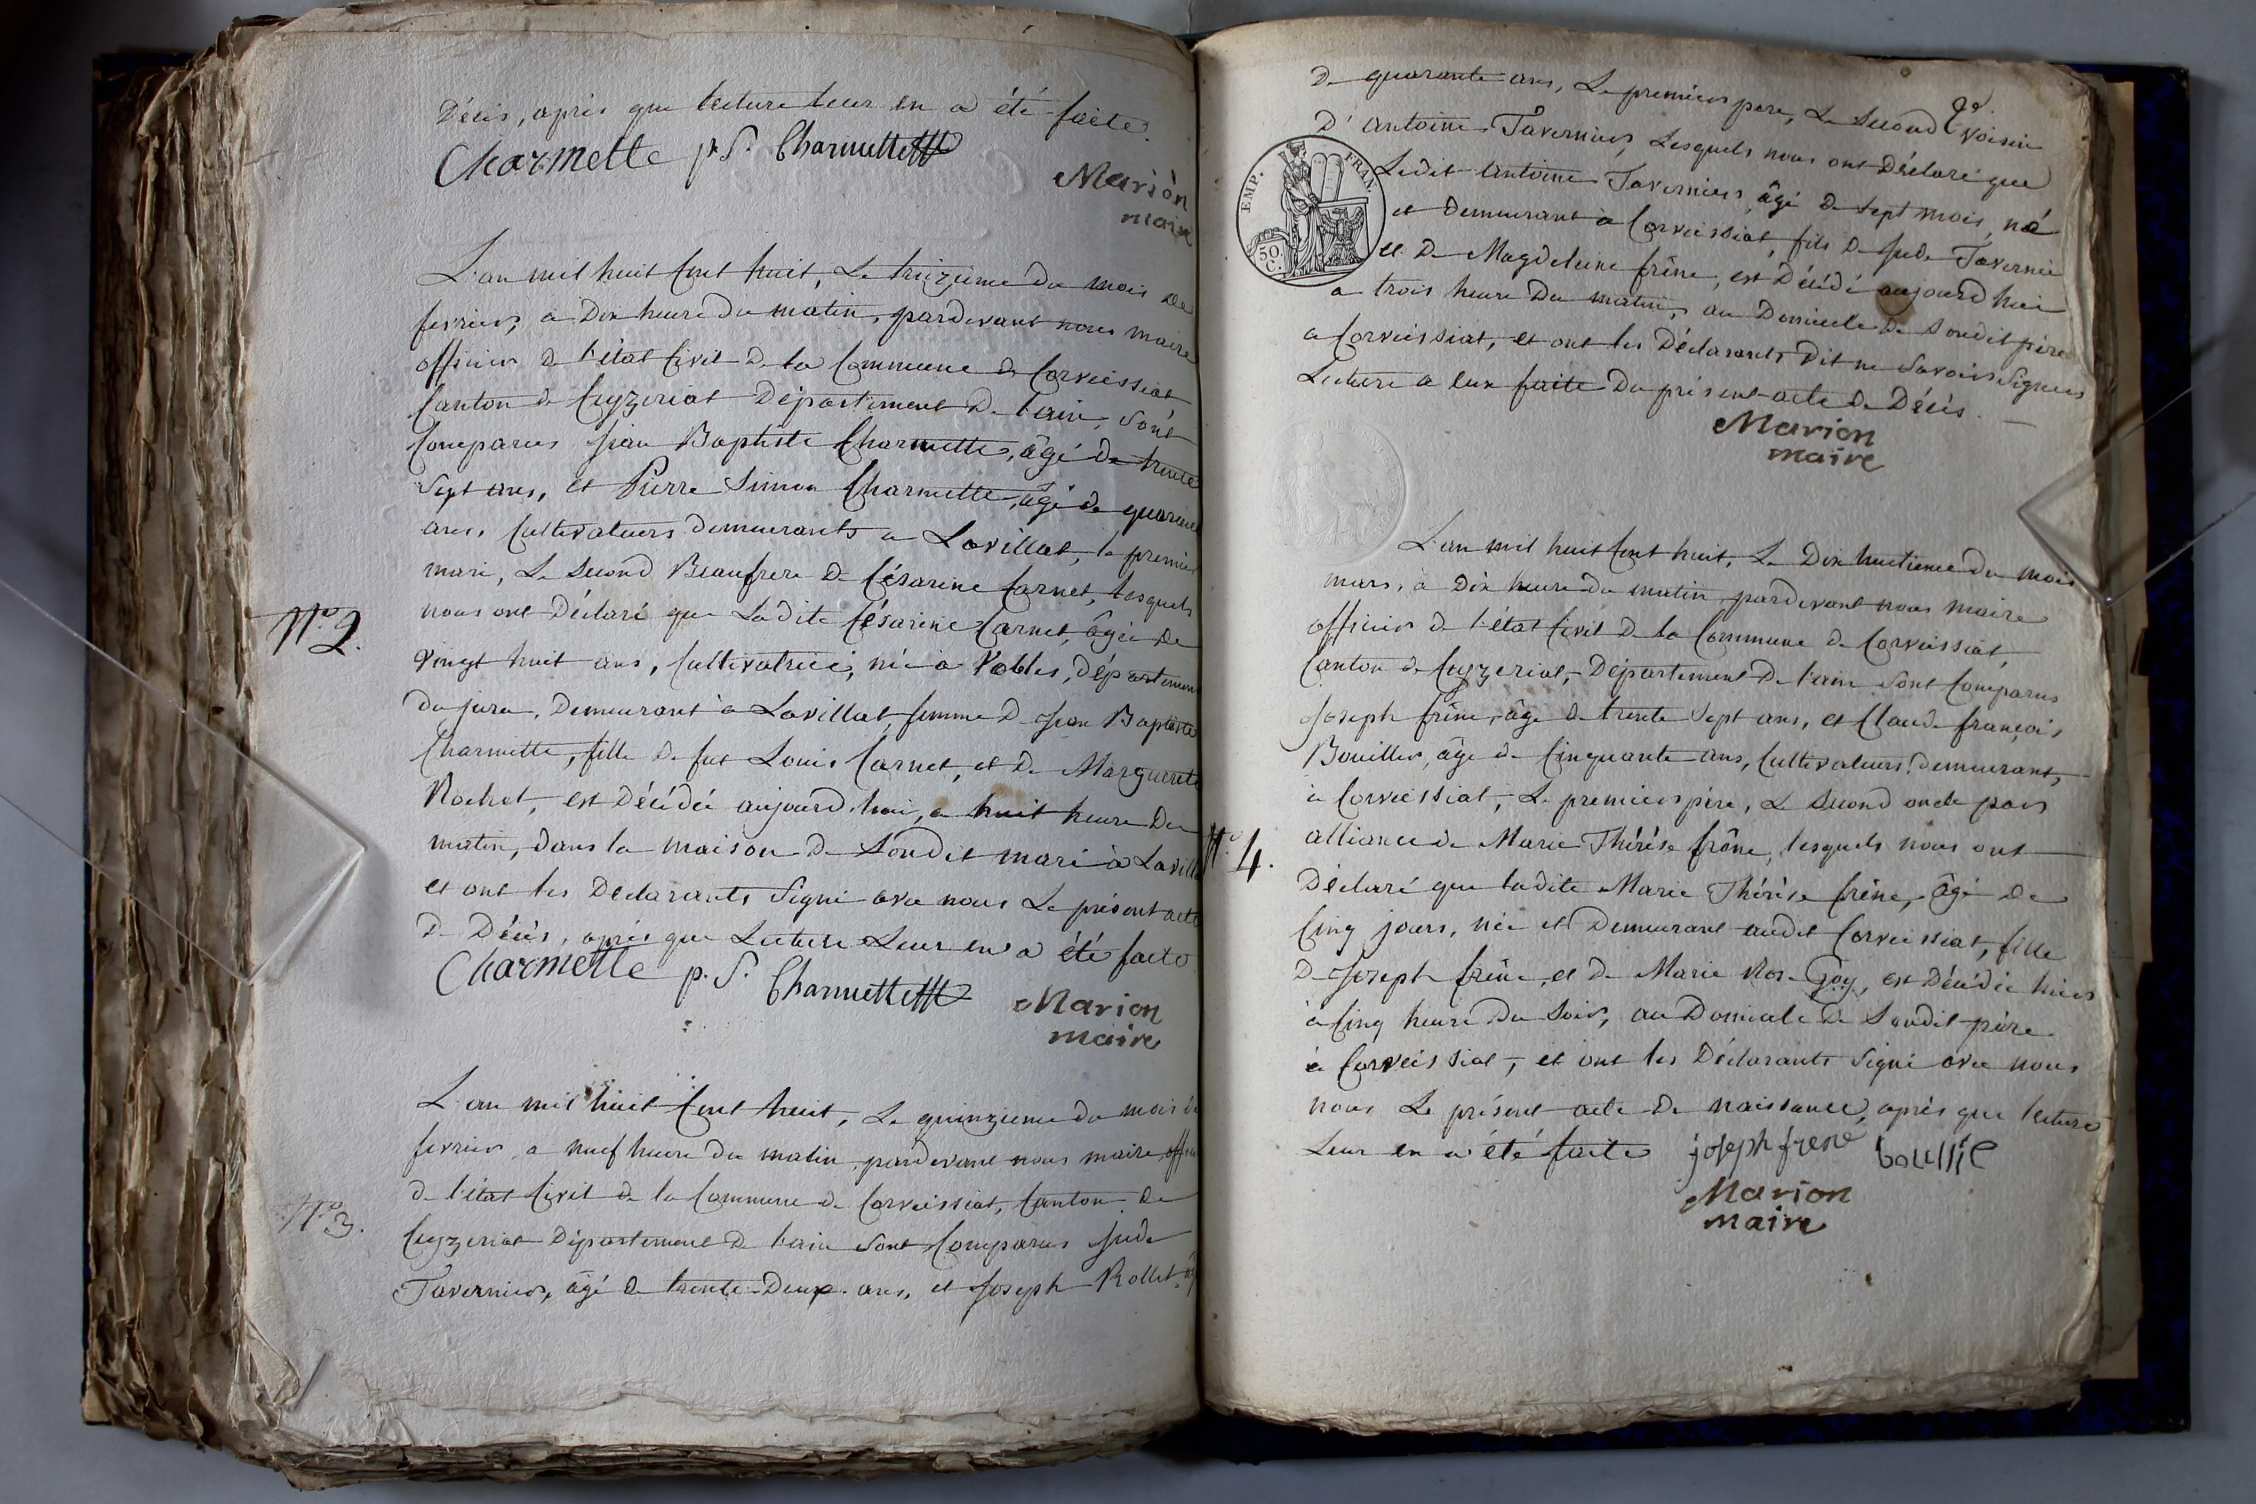 Décès, après que lecture leur en a été faite.
Charmette p. S. Charmette
Marion
maire
L'an mil huit cent huit, le treizieme du mois de
fevrier, a Dix heure du matin, pardevant nous maire
officier de l'état Civil de la Commune de Corveissiat
Canton de Ceyzeriat Département de l'ain, sont
Comparus Jean Baptiste Charmette, âgé de trente
sept ans, et Pierre Simon Charmette, âgé de quarante
ans, Cultivateurs demeurants a Lavillat, le premier
mari, Le second Beaufrere de Césarine Carnet, lesquels
N.o 2.
nous ont Déclaré que Ladite Césarine Carnet, âgée de
vingt huit ans, Cultivatrice, née à Vobles, département
du jura, Demeurant à Lavillat, femme de Jean Baptiste
Charmette, fille de fut Louis Carnet, et de Marguerite
Rochet, est Décédée aujourd'hui, a huit heure du
matin, dans la maison de sondit mari à Lavill
et ont les Déclarants signé avec nous Le présent acte
de Décès, après que Lecture Leur en a été faite
Charmette p. S. Charmette
Marion
maire
L'an mil huit Cent huit, Le quinzieme du mois de
fevrier, a neuf heure du matin, pardevant nous maire
de l'état Civil de la Commune de Corveissiat, Canton de
N.o 3.
Ceyzeriat Département de l'ain sont Comparus Jude
Tavernier, âgé de trente Deux ans, et Joseph Rollet
de quarante ans, Le premier pere, Le second voisin
D'antoine Tavernier, Lesquels nous ont Déclaré que
Ledit Antoine Tavernier, âgé de sept mois, né
et demeurant à Corveissiat, fils de Jude Tavernier
EMP. FRAN.
50 C.
et de Magdeleine frêne, est Décédé aujourd'hui
a trois heure Du matin, au Domicile de sondit père
a Corveissiat, et ont les Déclarants dit ne savoir signer
Lecture a eux faite Du présent acte de Décès.
Marion
maire
L'an mil huit Cent huit, Le Dix huitieme du mois
mars, à Dix heure du matin pardevant nous maire
officier de l'état Civil de la Commune de Corveissiat,
Canton de Ceyzeriat, Département de l'ain sont Comparus
Joseph frêne, âgé de trente sept ans, et Claude françois
Bouiller, âgé de Cinquante ans, Cultivateurs demeurant,
à Corveissiat, Le premier père, Le second oncle par
N.o 4.
alliance de Marie Thérèse frêne, lesquels nous ont
Déclaré que ladite Marie Thérèse frêne, âgé de
Cinq jours, née et Demeurant audit Corveissiat, fille
de Joseph frêne, et de Marie Rose Goy, est Décédée hier
à Cinq heure Du soir, au Domicile de sondit père
à Corveissiat, et ont les Déclarants signé avec nous
nous Le présent acte De naissance, après que lecture
Leur en a été faite joseph frene
Marion
maire